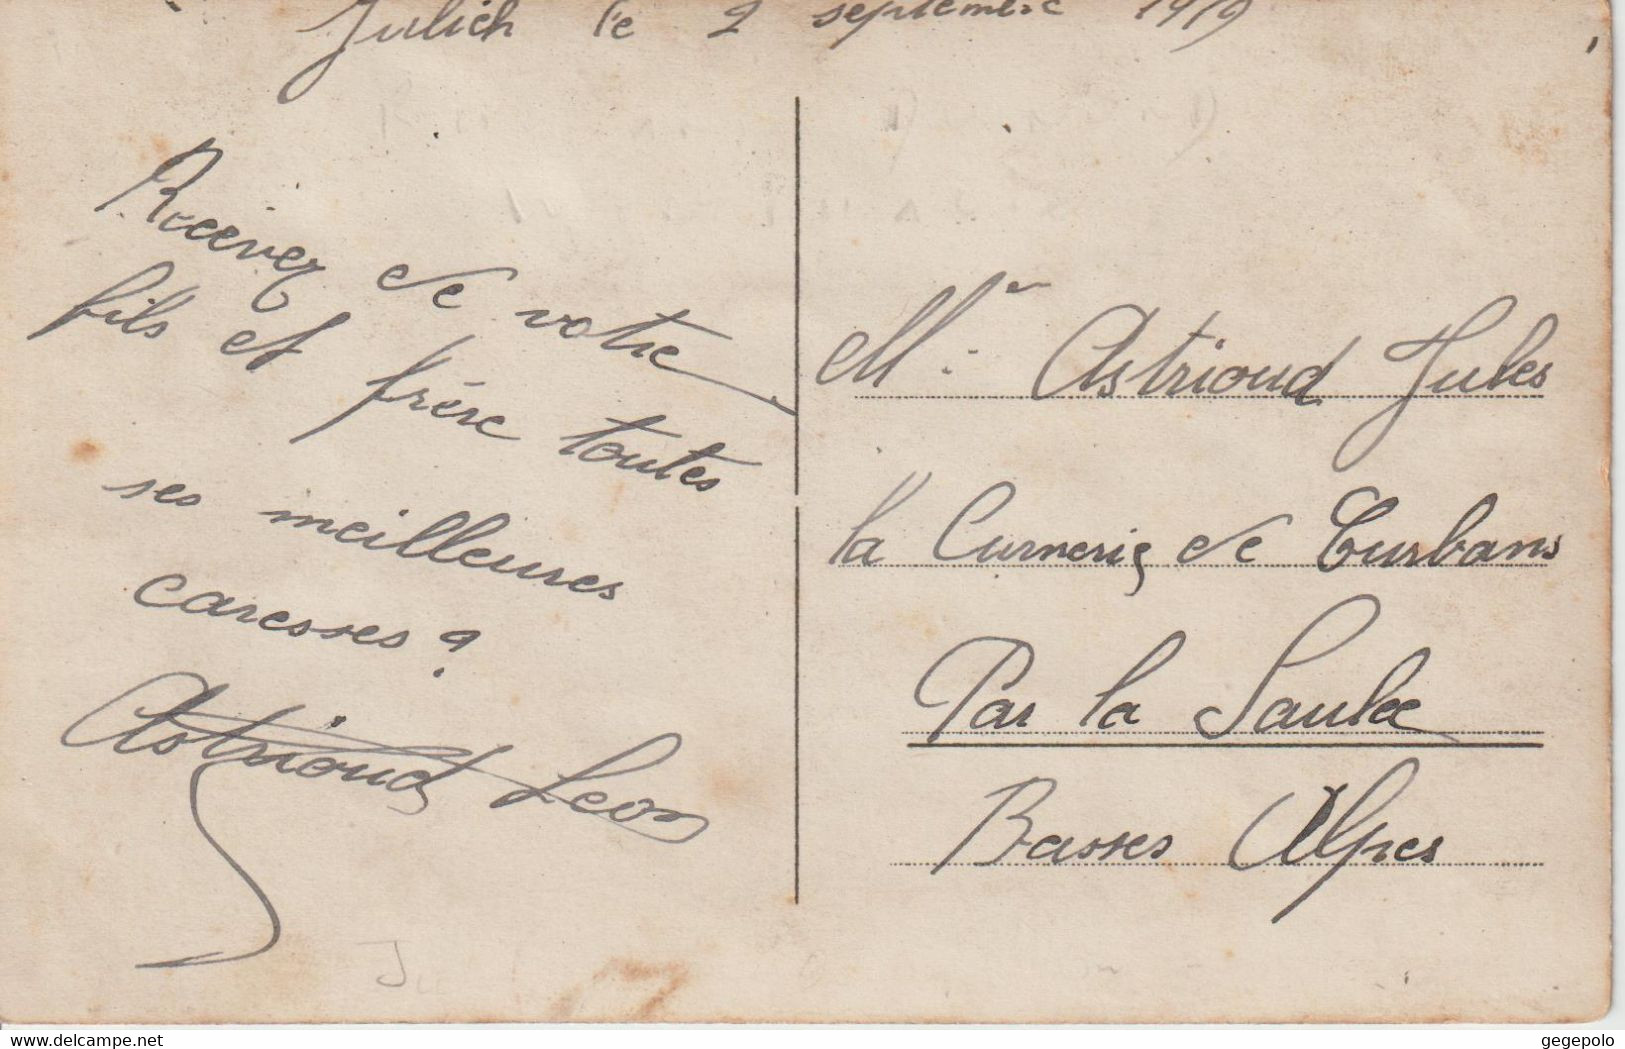 Julich le 2 septembre 1919
Recevez de votre
fils et frère toutes
ses meilleures
caresses ?
Astrioud Leon
Mr Astrioud Jules
la Curnerie de Curbans
Par la Saulce
Basses Alpes
delcampe.net
gegepolo